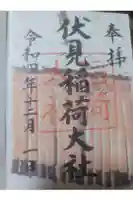 奉拝
伏見稲荷大社
令和四年十二月一日